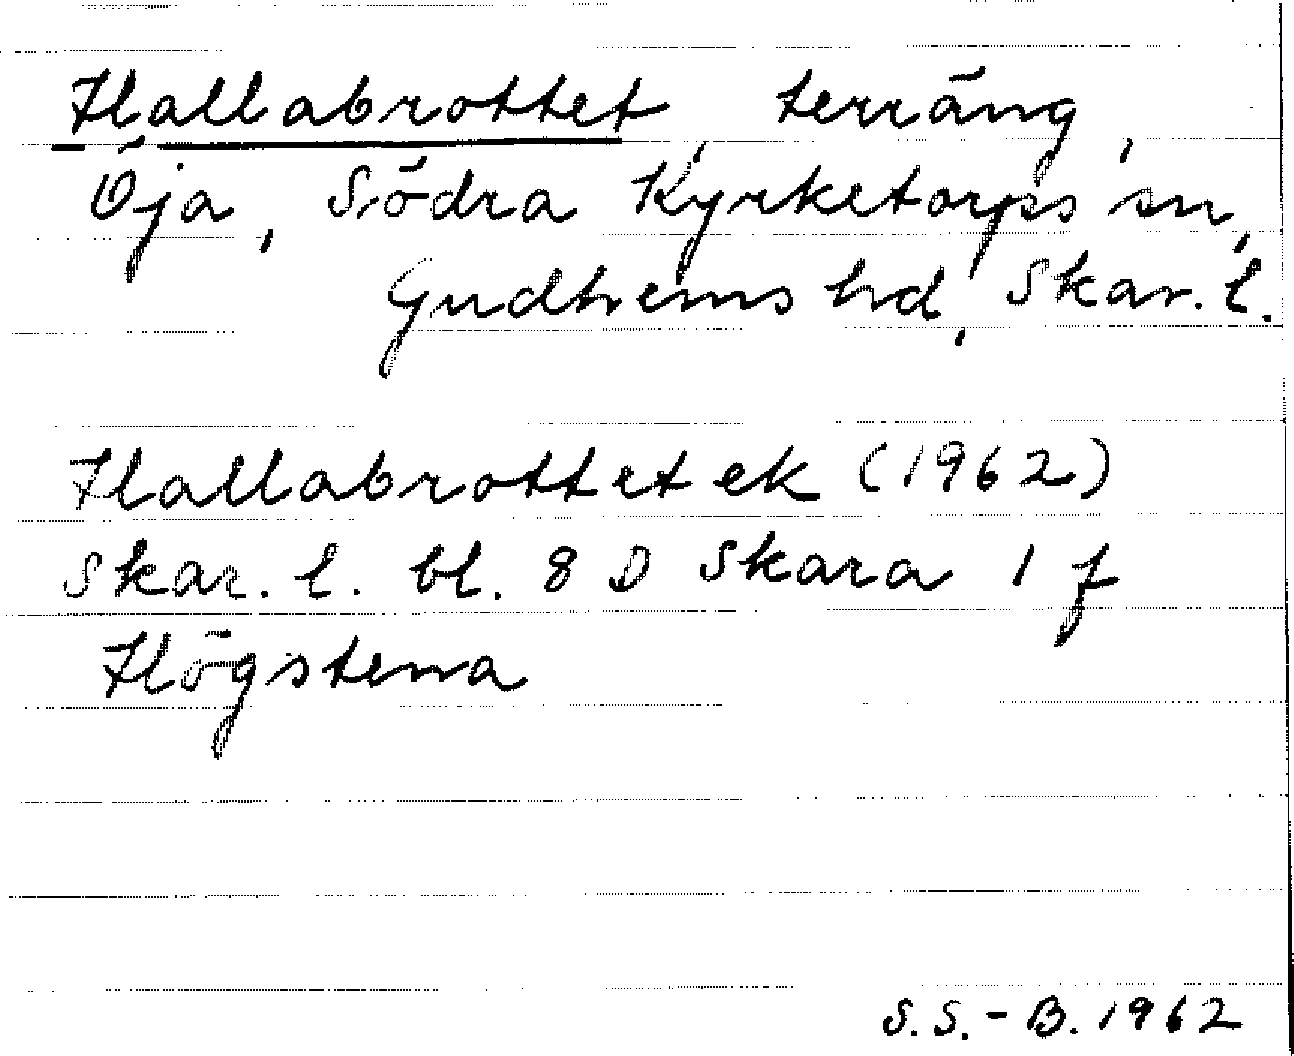 Hallabrottet, terräng,
Öja, Södra Kyrketorps sn,
Gudhems hd, Skar. l.
Hallabrottet ek (1962)
Skar. l. bl. 8 D Skara 1 f
Högstena
S. S. - B. 1962